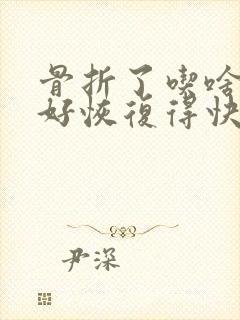 骨折了喫啥
好恢復得快
尹深